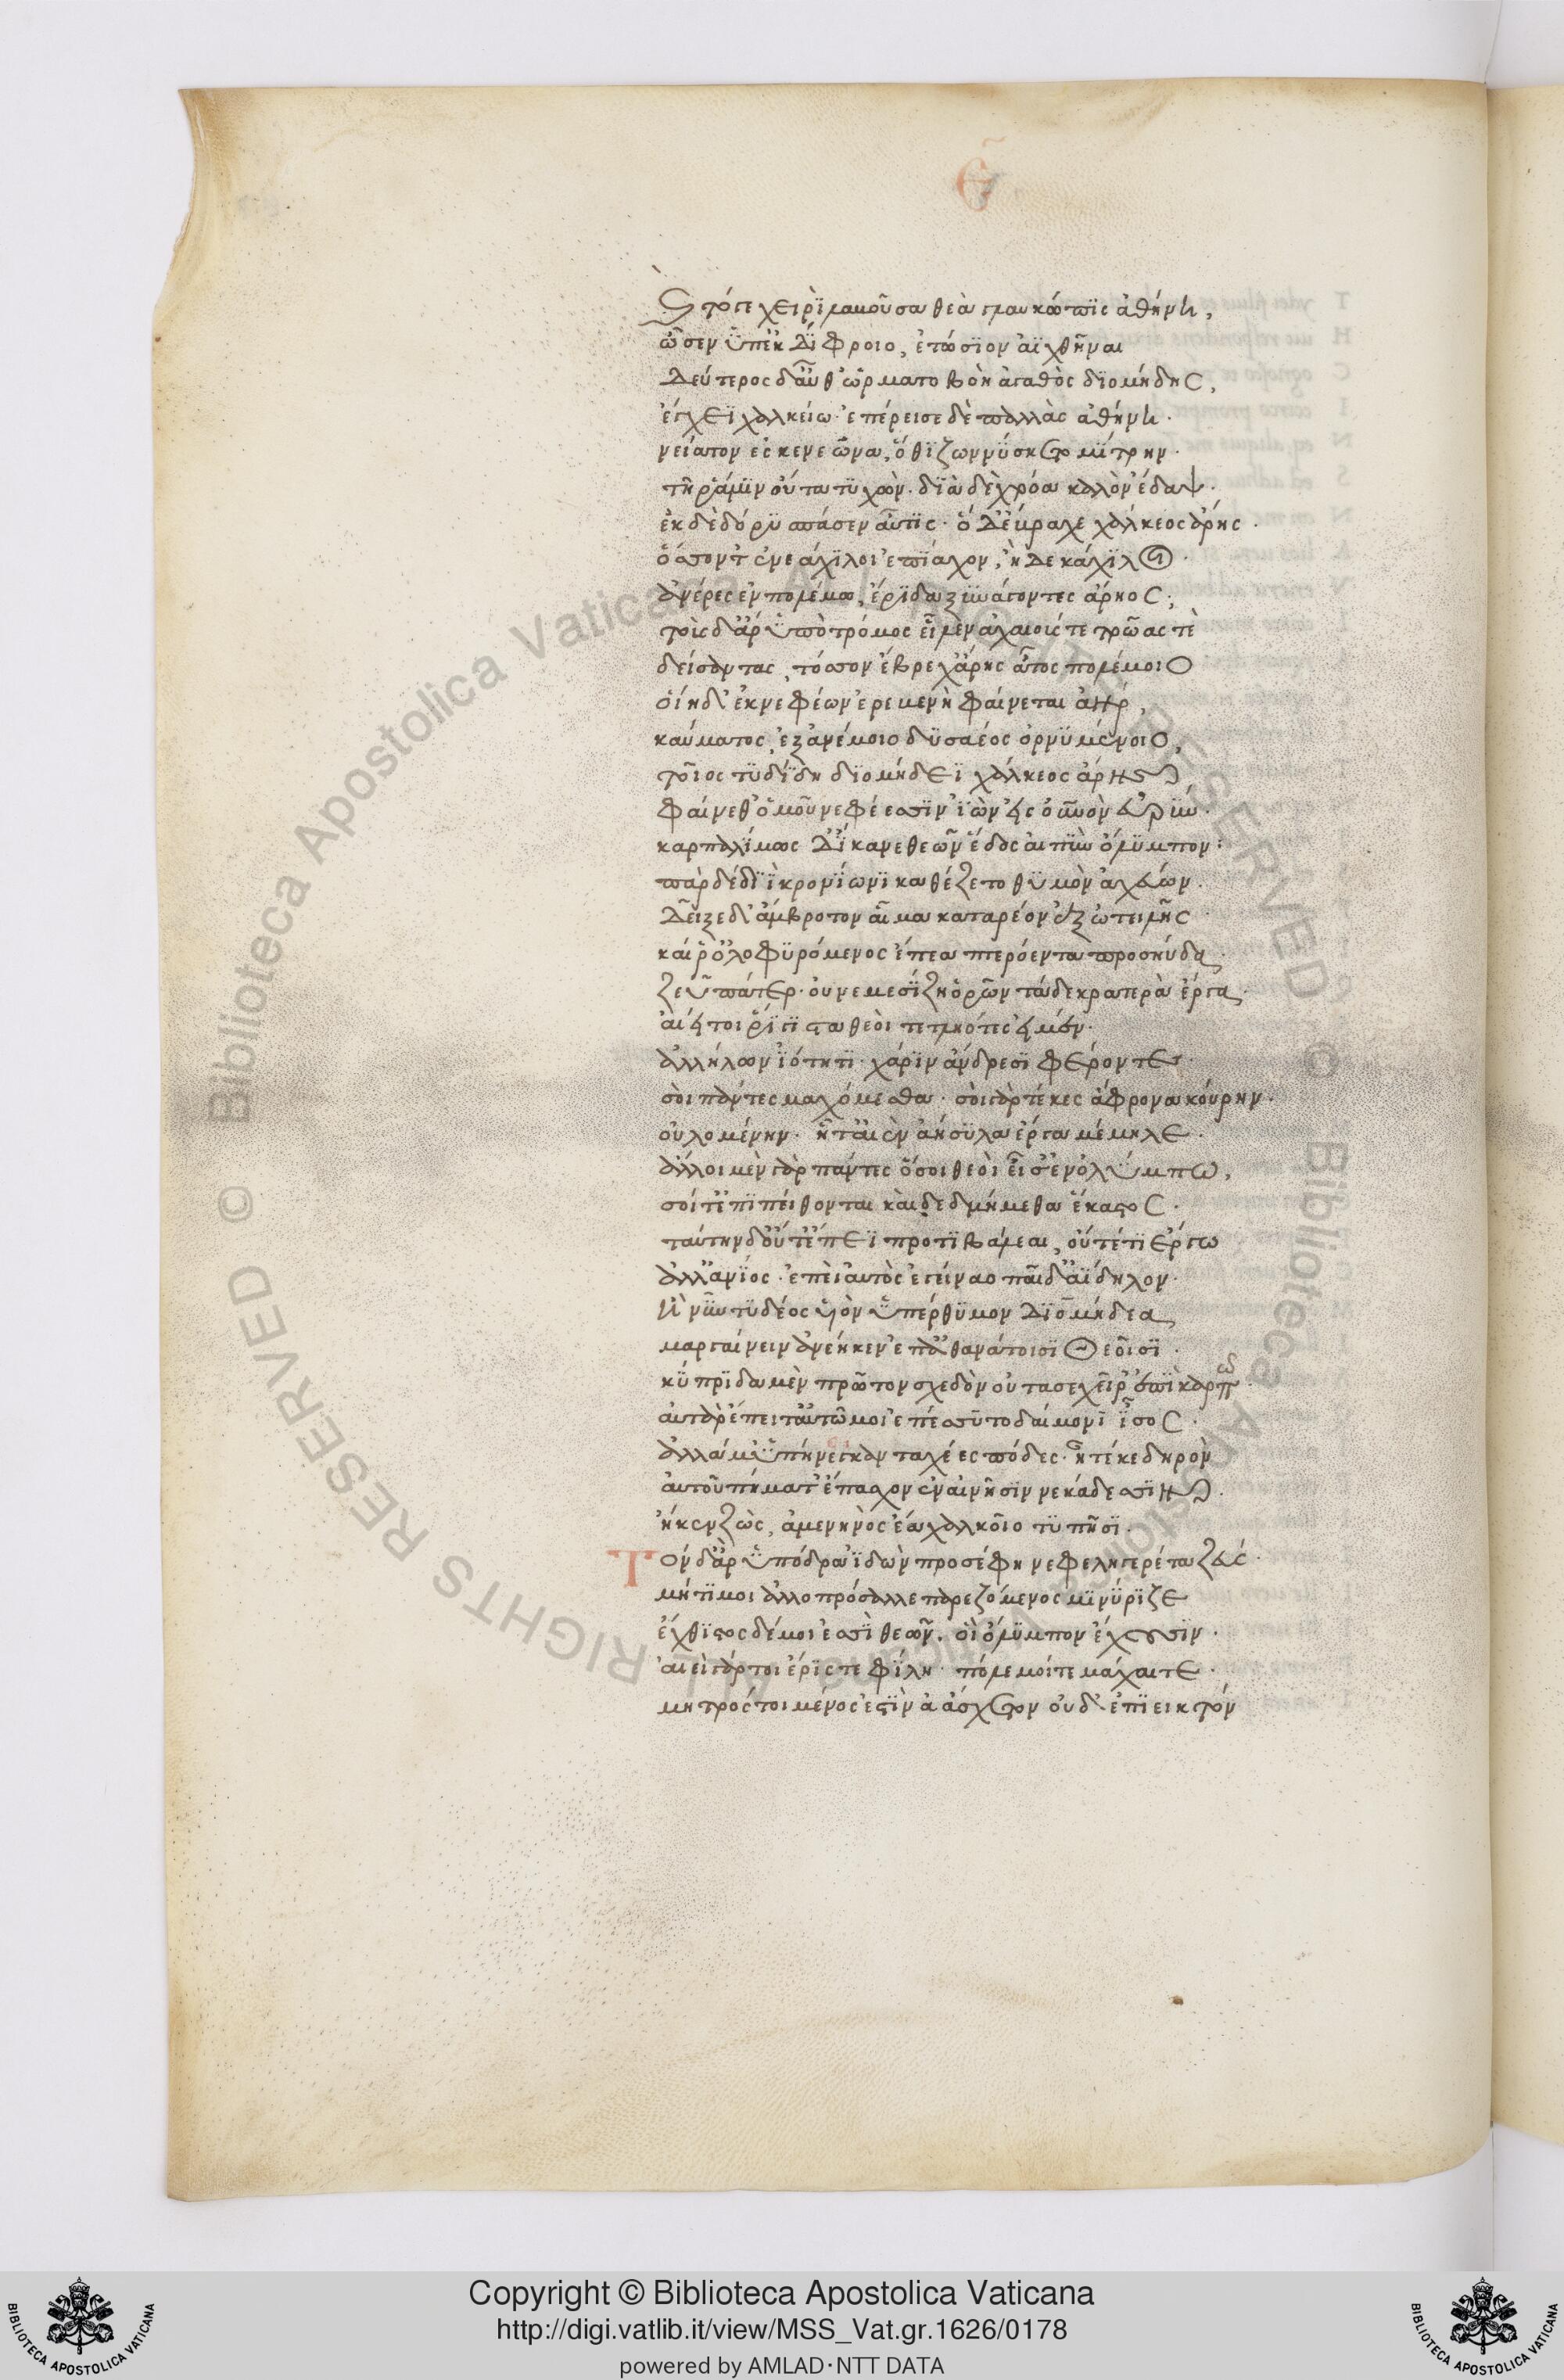 Ε
καὶ τόγε χειρὶ λαβοῦσα θεὰ γλαυκῶπις ἀθήνη,
ὦσεν ὑπὲκ δίφροιο, ἐτώσιον ἀϊχθῆναι
Δεύτερος δ' αὖθ' ὡρμᾶτο βοὴν ἀγαθὸς διομήδης,
ἔγχεϊ χαλκείω· ἐπέρεισε δὲ παλλὰς ἀθήνη·
νείατον ἐς κενεῶνα, ὅθι ζωννύσκετο μίτρην·
τῆ ῥά μιν οὖτα τυχών· διὰ δὲ χρόα καλὸν ἔδαψ·
ἐκ δὲ δόρυ σπάσεν αὖτις· ὁ δ' ἔβραχε χάλκεος ἄρης·
ὅσσόν τ' ἐννεάχιλοι ἐπίαχον, ἢ δεκάχιλοι·
ἀνέρες ἐν πολέμω, ἔριδα ξυνάγοντες ἄρηος·
τοὺς δ' ἄρ ὑπὸ τρόμος εἷλεν ἀχαιούς τε τρῶας τὲ
δείσαντας, τόσσον ἔβρεχ' ἄρης ἆτος πολέμοιο
οἵη δ' ἐκ νεφέων ἐρεμενὴ φαίνεται ἀὴρ,
καύματος, ἐξ ἀνέμοιο δυσαέος ὀρνυμένοιο,
τοῖος τυδείδη διομήδεϊ χάλκεος ἄρης
φαίνεθ' ὁμοῦ νεφέεσσιν ἰὼν εἰς οὐρανὸν εὐρύν·
καρπαλίμως δ' ἵκανε θεῶν ἕδος αἰπὺν ὄλυμπον·
πὰρ δὲ διὶ κρονίωνι καθέζετο θυμὸν ἀχεύων·
Δεῖξε δ' ἄμβροτον αἷμα καταρέον ἐξ ὠτειλῆς
καί ῥ' ὀλοφυρόμενος ἔπεα πτερόεντα προσηύδα
ζεῦ πάτερ· οὐ νεμεσίζη ὁρῶν τάδε κρατερὰ ἔργα·
αἰεί τοι ῥίγιστα θεοὶ τετληότες εἰμέν·
ἀλλήλων ἰότητι· χάριν ἄνδρεσι φέροντες·
σοὶ πάντες μαχόμεσθα· σὺ γὰρ τέκες ἄφρονα κούρην·
οὐλομένην· ἧτ' αἰὲν ἀήσυλα ἔργα μέμηλε·
ἄλλοι μὲν γὰρ πάντες ὅσοι θεοὶ εἰσ' ἐν ὀλύμπω,
σοί τ' ἐπιπείθονται καὶ δεδμήμεθα ἕκαστος·
ταύτην δ' οὔτ' ἔπεϊ προτιβάλεαι, οὔτέ τι ἔργω
ἀλλ' ἀνίος· ἐπεὶ αὐτὸς ἐγείναο παῖδ' ἀΐδηλον·
ἣ νῦν τυδέος υἱὸν ὑπέρθυμον διομήδεα
μαργαίνειν ἀνέηκεν ἐπ' ἀθανάτοισι θεοῖσι·
κύπριδα μὲν πρῶτον σχεδὸν οὔτασε χεῖρ' ἐπὶ καρπῶ·
αὐτὰρ ἔπειτ' αὐτῶ μοι ἐπέσσυτο δαίμονι ἶσος·
ἀλλά μ' ὑπήνεικαν ταχέες πόδες· ἦτέ κε δηρὸν
αὐτοῦ πήματ' ἔπασχον ἐν αἰνῆσιν νεκάδεσσιν·
ἤ κε ζὼς, ἀμενηνὸς ἔα χαλκοῖο τυπῆσι·
Τὸν δ' ἄρ ὑπόδρα ἰδὼν προσέφη νεφεληγερέτα ζεύς·
μήτι μοι ἀλλοπρόσαλλε παρεζόμενος μινύριζε
ἔχθιστος δέ μοι ἐσσὶ θεῶν· οἳ ὄλυμπον ἔχουσιν·
αἰεὶ γάρ τοι ἔρις τε φίλη· πόλεμοί τε μάχαι τε·
μητρός τοι μένος ἐστὶν ἀάσχετον οὐδ' ἐπιεικτόν
Copyright © Biblioteca Apostolica Vaticana
http://digi.vatlib.it/view/MSS_Vat.gr.1626/0178
powered by AMLAD·NTT DATA